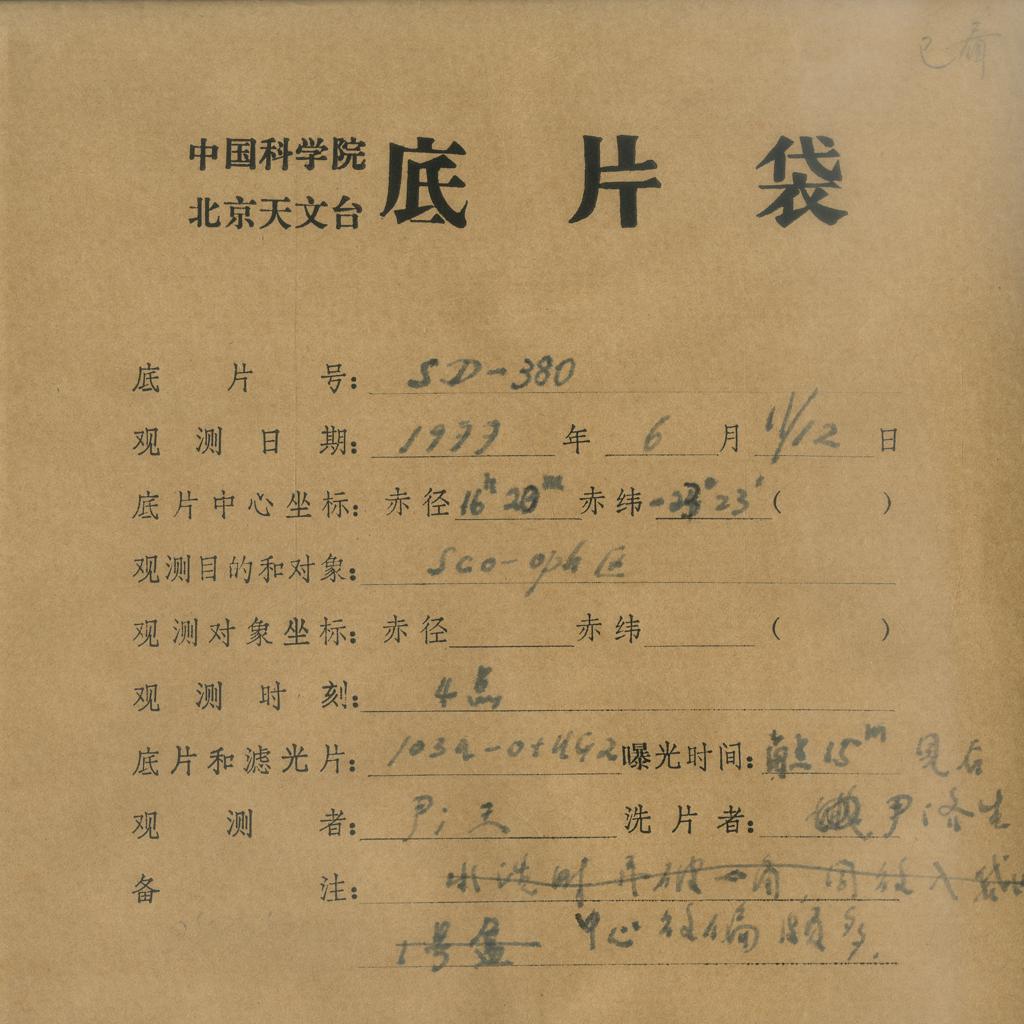 已看
中国科学院
北京天文台
底片袋
底片号：SD-380
观测日期：1977年6月11/12日
底片中心坐标：赤径16h20m赤纬-23°23′（ ）
观测目的和对象：Sco-oph区
观测对象坐标：赤径 赤纬 （ ）
观测时刻：4点
底片和滤光片：103a-O+UG2曝光时间：15m 见后
观测者：尹；王
洗片者：尹济生
备注：水洗时弄破一角，同放入
1号盒 中心往偏